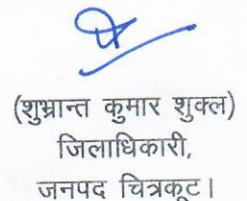 (शुभ्रान्त कुमार शुक्ल)
जिलाधिकारी,
जनपद चित्रकूट।